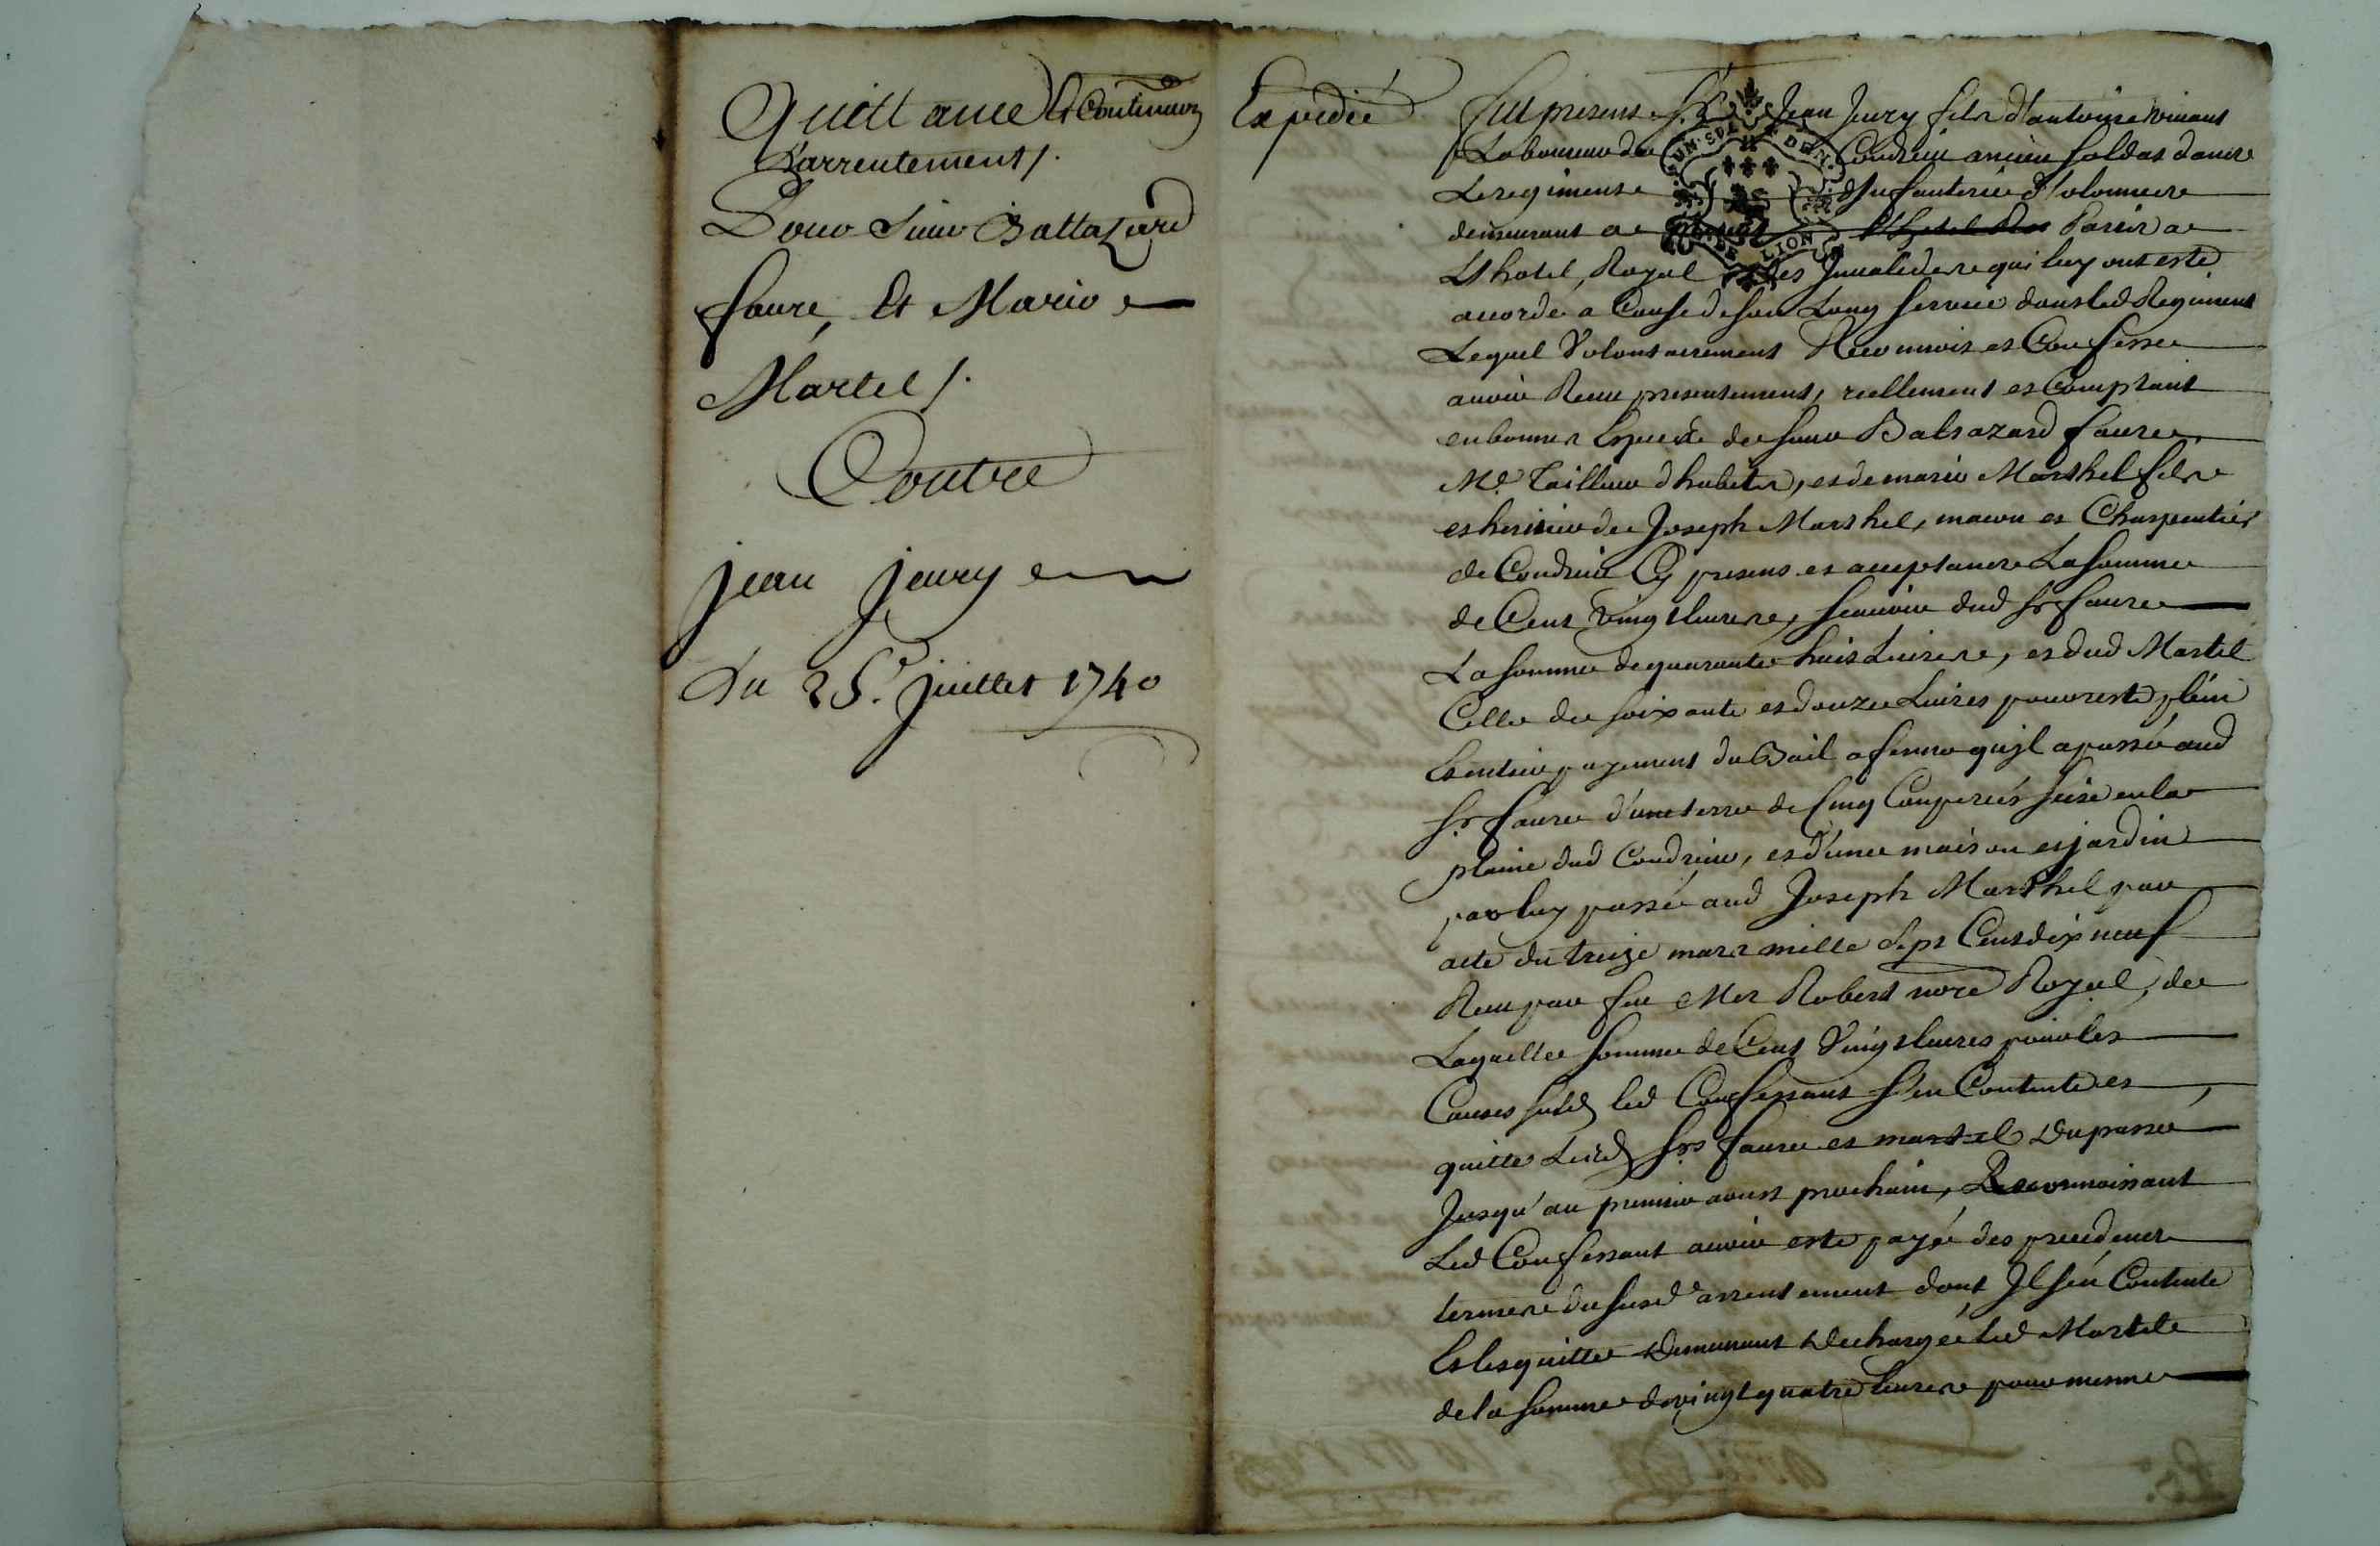 Quittance et Continuaon
D'arrentement /.
Pour Sieur Baltazard
faure, Et Marie
Martel /.
Contre
Jean Jeury
Du 25e. Juillet 1740
Expedié
fut present Sr. Jean Jeury fils d'antoine vivant
Laboureur de Condrieu ancien soldat dans
Le regiment d'Infanterie
demeurant a Paris a
Lhotel, Royal des Invalides qui luy ont esté
acordé a Cause de son Long service dans led Regiment
Lequel Volontairement Reconnoit et Confesse
avoir Receu presentement, reellement et Comptant
en bonnes Especes de sieur Balsazard faure
Me. Tailleur dhabits, et de marie Marthel
et de Joseph Marthel, macon et Charpentier
de Condrieu Cy present et acceptants La somme
de Cent Vingt livres, scavoir dud Sr faure
La somme de quarante huit Livres, et dud Martel
Celle de soixante et douze Livres pour reste plein
Et entier payement du Bail a ferme qu'jl a passé aud
Sr. faure d'une terre de Cinq Couperées size en la
plaine dud Condrieu, et d'une maison et jardin
par luy passé aud Joseph Marthel par
acte du treize mars mille Sept Cent dix neuf
Receu par feu Me Robert nore Royal, de
Laquelle somme de Cent Vingt livres pour les
Causes susd led Confessant s'en Contente et
quitte Lesd Srs faure et martel Du passé
Jusqu'au premier aoust prochain, Reconnoissant
Led Confessant avoir esté payé des precedents
termes du susd arrentement dont Jl s'en Contente
Et les quitte Demeurant Dechargé led Martel
de la somme de vingt quatre livres pour